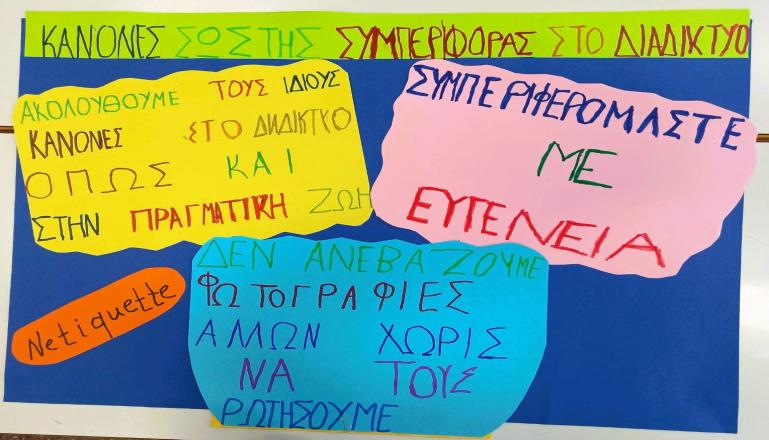 ΚΑΝΟΝΕΣ ΣΩΣΤΗΣ ΣΥΜΠΕΡΙΦΟΡΑΣ ΣΤΟ ΔΙΑΔΙΚΤΥΟ
ΑΚΟΛΟΥΘΟΥΜΕ ΤΟΥΣ ΙΔΙΟΥΣ
ΚΑΝΟΝΕΣ ΣΤΟ ΔΙΑΔΙΚΤΥΟ
ΟΠΩΣ ΚΑΙ
ΣΤΗΝ ΠΡΑΓΜΑΤΙΚΗ ΖΩΗ
ΣΥΜΠΕΡΙΦΕΡΟΜΑΣΤΕ
ΜΕ
ΕΥΓΕΝΕΙΑ
ΔΕΝ ΑΝΕΒΑΖΟΥΜΕ
ΦΩΤΟΓΡΑΦΙΕΣ
ΑΛΛΩΝ ΧΩΡΙΣ
ΝΑ ΤΟΥΣ
ΡΩΤΗΣΟΥΜΕ
Netiquette